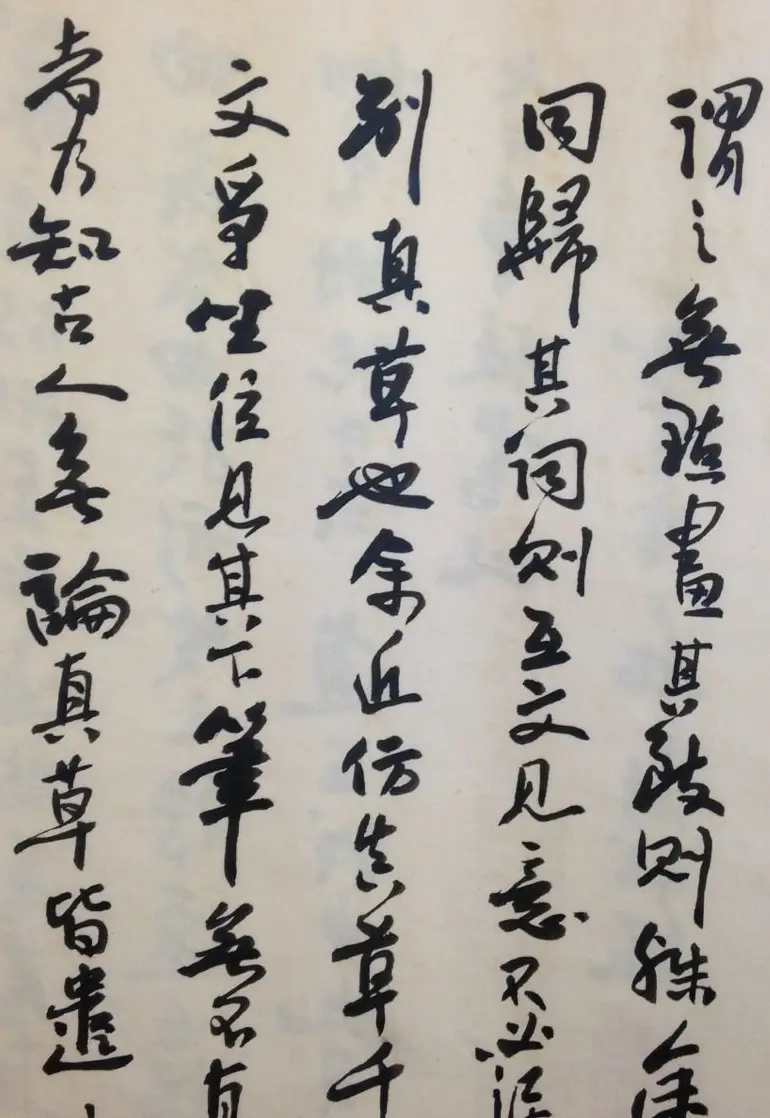 謂之無點畫其致則殊余
同歸其詞則互文見意不必深
別真草也余近仿真草千
文爭坐位見其下筆無不有
者乃知古人無論真草皆遣